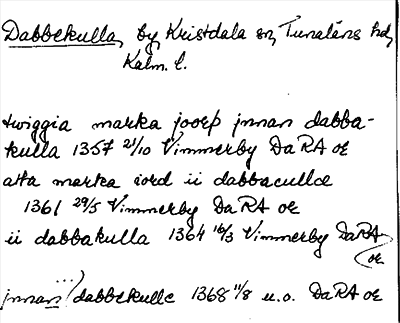 Dabbekulla, by, Kristdala sn, Tunaläns hd,
Kalm. l.
twiggia marka joorþ jnnan dabba-
kulla 1357 21/10 Vimmerby DaRA oe
atta marka iord ii dabbaculle
1361 29/5 Vimmerby DaRA oe
ii dabbakulla 1364 16/3 Vimmerby DaRA
oe
jnnan (...) dabbekulle 1368 11/8 u.o. DaRA oe